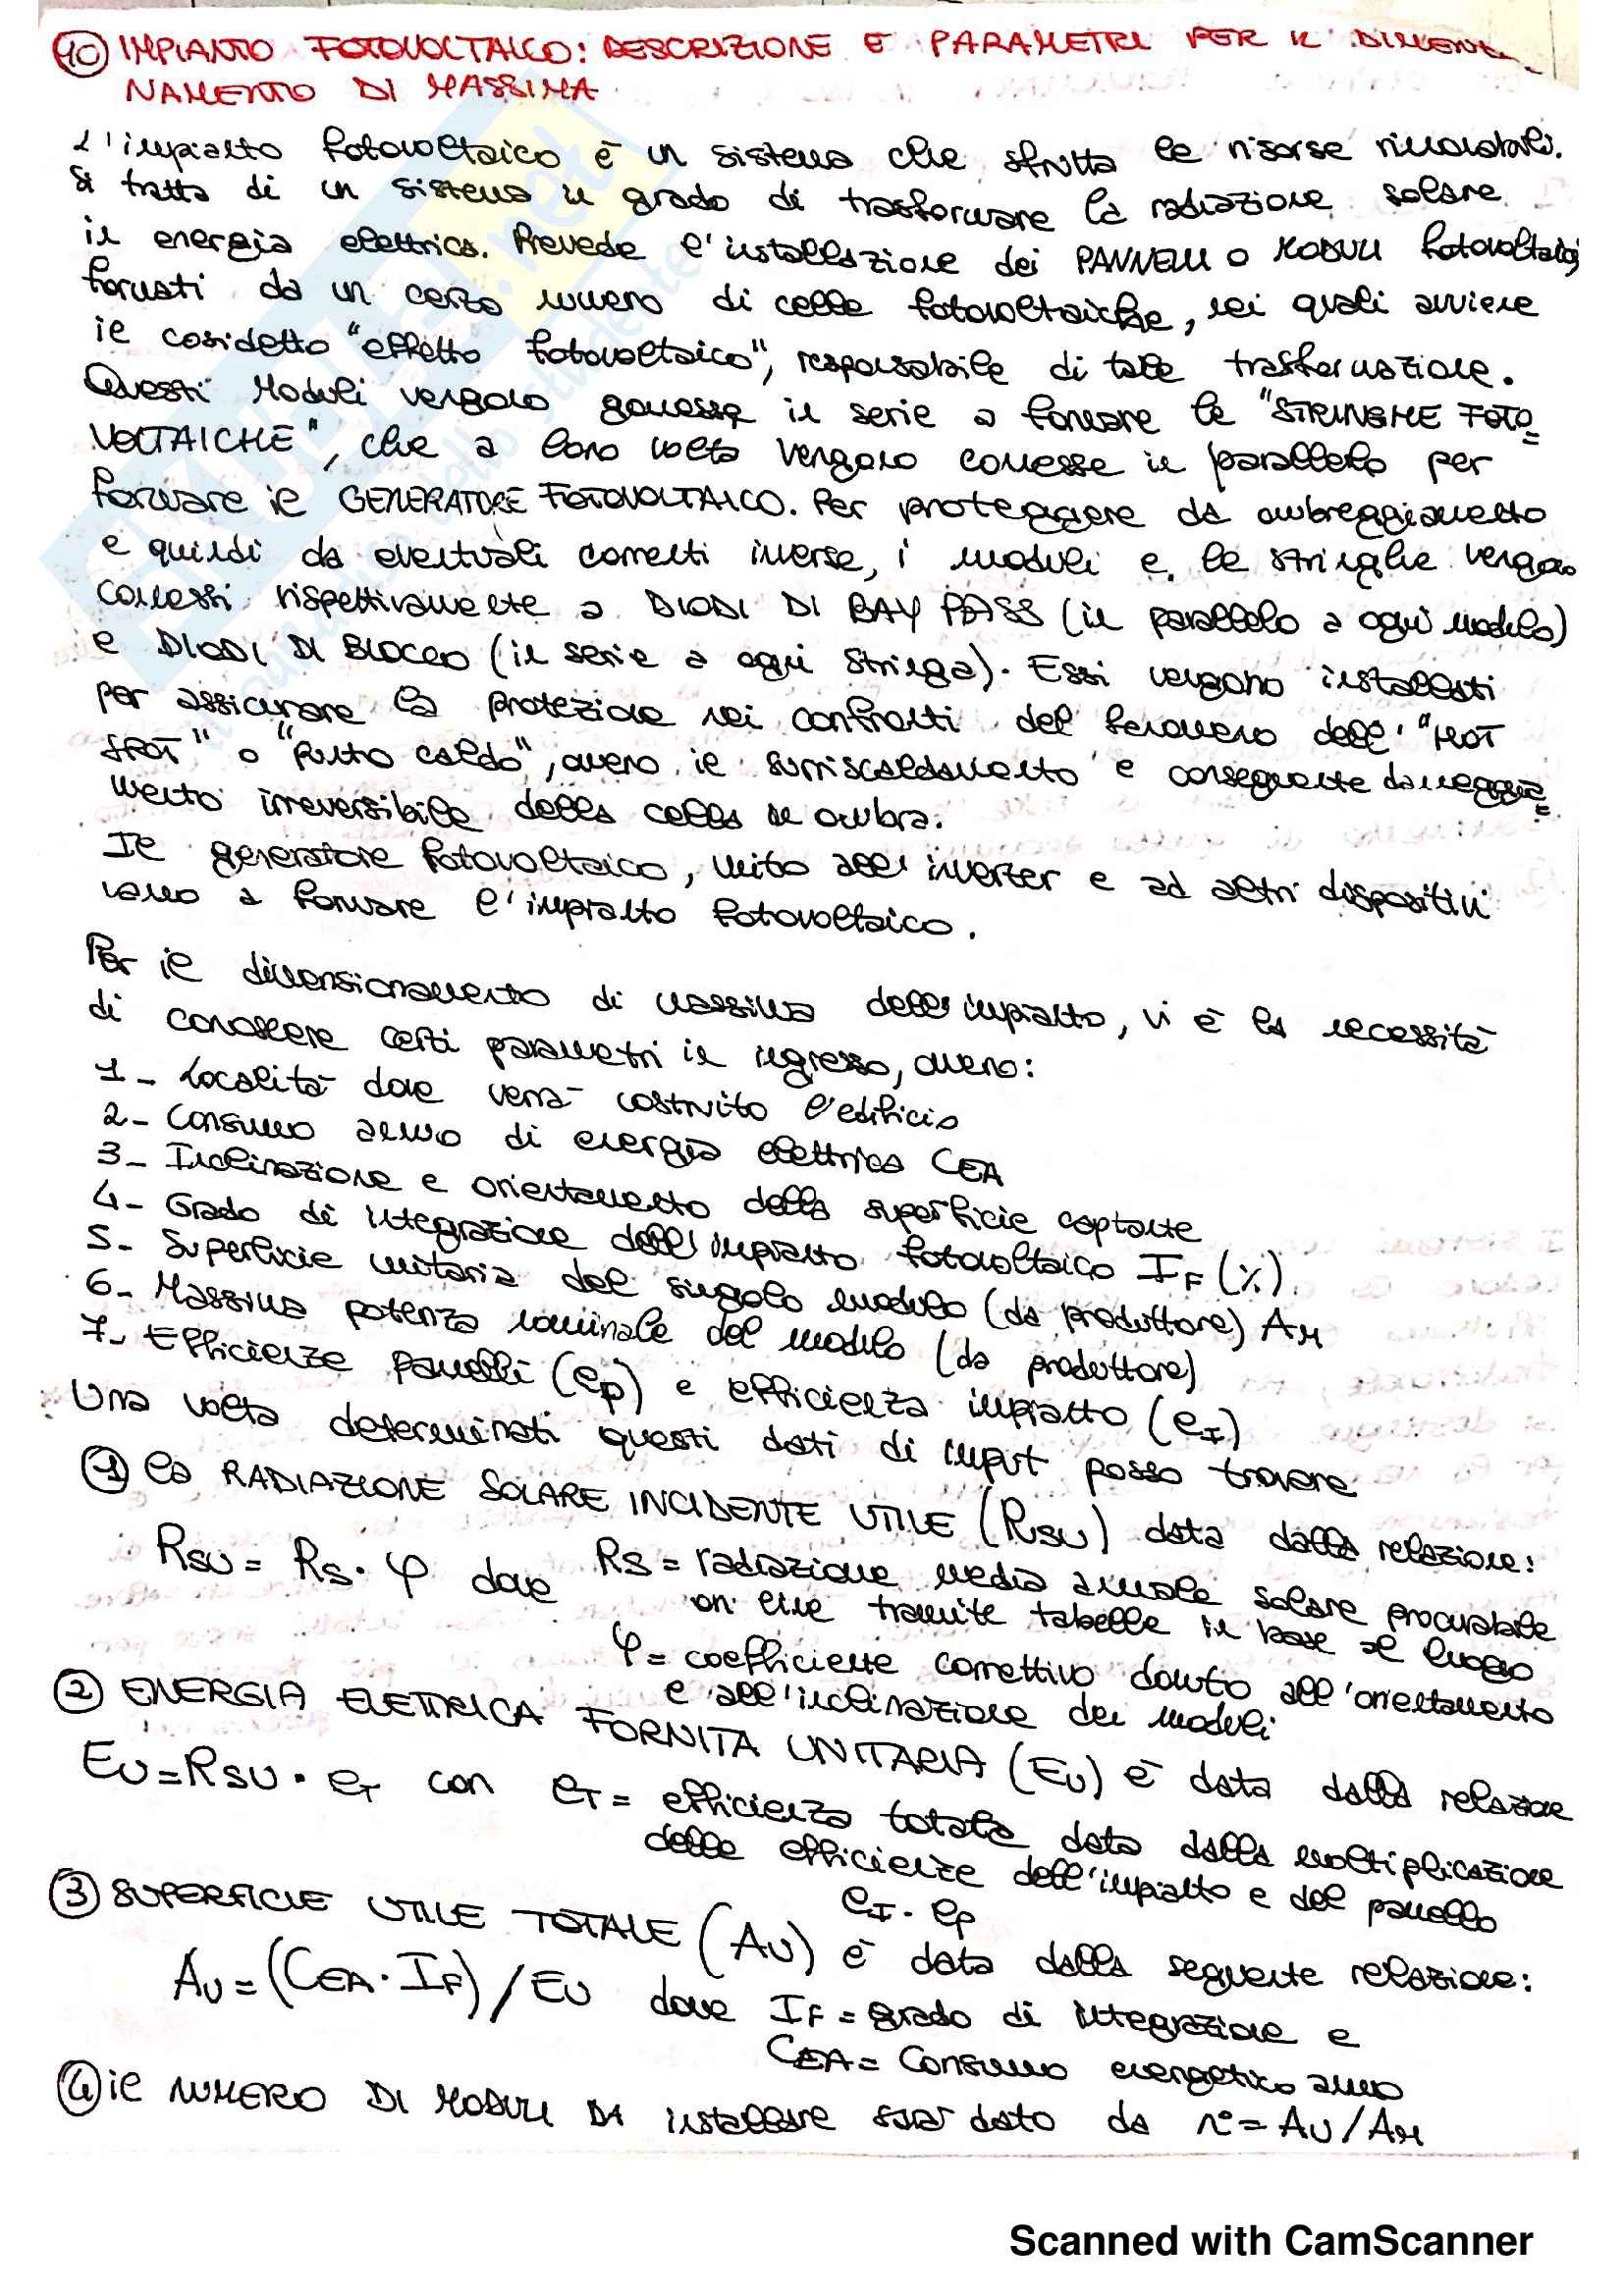 40 IMPIANTO FOTOVOLTAICO: DESCRIZIONE E PARAMETRI PER IL DIMENSIO
NAMENTO DI MASSIMA
L'impianto fotovoltaico è un sistema che sfrutta le risorse rinnovabili.
Si tratta di un sistema in grado di trasformare la radiazione solare
in energia elettrica. Prevede l'installazione dei PANNELLI O MODULI fotovoltaici
formati da un certo numero di celle fotovoltaiche, nei quali avviene
il cosidetto "effetto fotovoltaico", responsabile di tale trasformazione.
Questi moduli vengono connesse in serie a formare le "STRINGHE FOTO=
VOLTAICHE", che a loro volta vengono connesse in parallelo per
formare il GENERATORE FOTOVOLTAICO. Per proteggere da ombreggiamento
e quindi da eventuali correnti inverse, i moduli e le stringhe vengono
connessi rispettivamente a DIODI DI BAY PASS (in parallelo a ogni modulo)
e DIODI DI BLOCCO (in serie a ogni stringa). Essi vengono installati
per assicurare la protezione nei confronti del fenomeno dell' "HOT
SPOT" o "punto caldo", ovvero il surriscaldamento e conseguente danneggia=
mento irreversibile della cella in ombra.
Il generatore fotovoltaico, unito all'inverter e ad altri dispositivi
vanno a formare l'impianto fotovoltaico.
Per il dimensionamento di massima dell'impianto, vi è la necessità
di conoscere certi parametri in ingresso, ovvero:
1- Località dove verrà costruito l'edificio
2- Consumo annuo di energia elettrica CEA
3- Inclinazione e orientamento della superficie captante
4- Grado di integrazione dell'impianto fotovoltaico IF (%)
5- Superficie unitaria del singolo modulo (da produttore) AM
6- Massima potenza nominale del modulo (da produttore)
7- Efficienze pannelli (ep) e efficienza impianto (eI)
Una volta determinati questi dati di input posso trovare
1 la RADIAZIONE SOLARE INCIDENTE UTILE (RSU) data dalla relazione:
RSU = RS · φ dove RS = radiazione media annuale solare procurabile
on line tramite tabelle in base al luogo
φ = coefficiente correttivo dovuto all'orientamento
e all'inclinazione dei moduli
2 ENERGIA ELETTRICA FORNITA UNITARIA (EU) è data dalla relazione
EU = RSU · eT con eT = efficienza totale data dalla moltiplicazione
delle efficienze dell'impianto e del pannello
eI · ep
3 SUPERFICIE UTILE TOTALE (AU) è data dalla seguente relazione:
AU = (CEA · IF) / EU dove IF = grado di integrazione e
CEA = Consumo energetico annuo
4 il NUMERO DI MODULI DA installare sarà dato da n° = AU / AM
Scanned with CamScanner